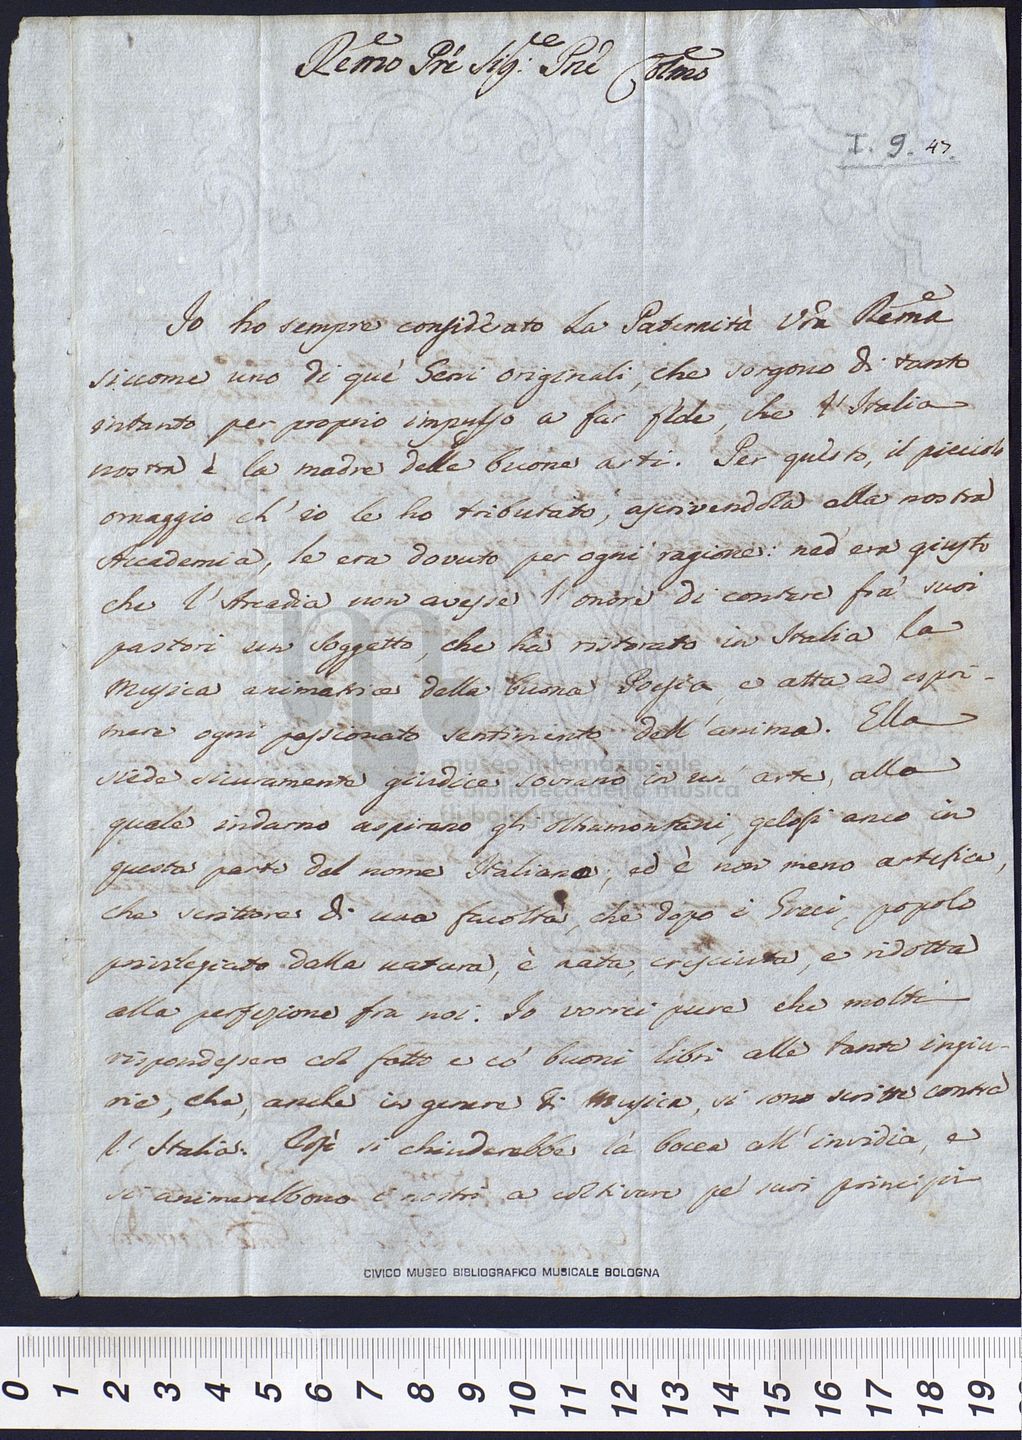 Rēmo Pre Sig.re Pne Colmo
I. 9. 47.
Io ho sempre considerato la Paternità Vra Rema
siccome uno di que' Genj originali, che sorgono di tanto
intanto per proprio impulso a far fede, che l'Italia
nostra è la madre delle buone arti. Per questo, il piccolo
omaggio ch'io le ho tributato, ascrivendola alla nostra
Accademia, le era dovuto per ogni ragione: nè era giusto
che l'Arcadia non avesse l'onore di contare fra' suoi
pastori un soggetto, che ha ristorato in Italia la
Musica animatrice della buona Poesia, e atta ad espri-
mere ogni passionato sentimento dell'anima. Ella
siede sicuramente giudice sovrano in un'arte, alla
quale indarno aspirano gli Oltramontani, gelosi anco in
questa parte del nome Italiano; ed è non meno artefice,
che scrittore di una facoltà, che dopo i Greci, popolo
privilegiato dalla natura, è nata, cresciuta, e ridotta
alla perfezione fra noi. Io vorrei pure che molti
rispondessero col fatto e co' buoni libri alle tante ingiu-
rie, che, anche in genere di Musica, si sono scritte contra
l'Italia. Così si chiuderebbe la bocca all'invidia, e
si animarebbono i nostri a coltivare pe' suoi principj
museo internazionale
biblioteca della musica
di bologna
CIVICO MUSEO BIBLIOGRAFICO MUSICALE BOLOGNA
0 1 2 3 4 5 6 7 8 9 10 11 12 13 14 15 16 17 18 19